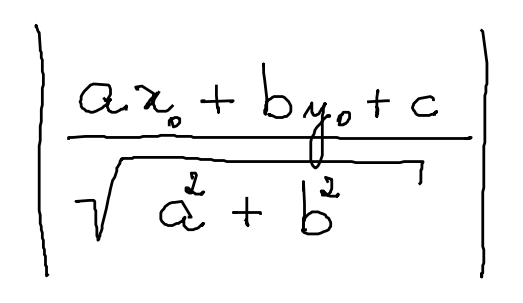 $\left| \frac{ax_0 + by_0 + c}{\sqrt{a^2 + b^2}} \right|$